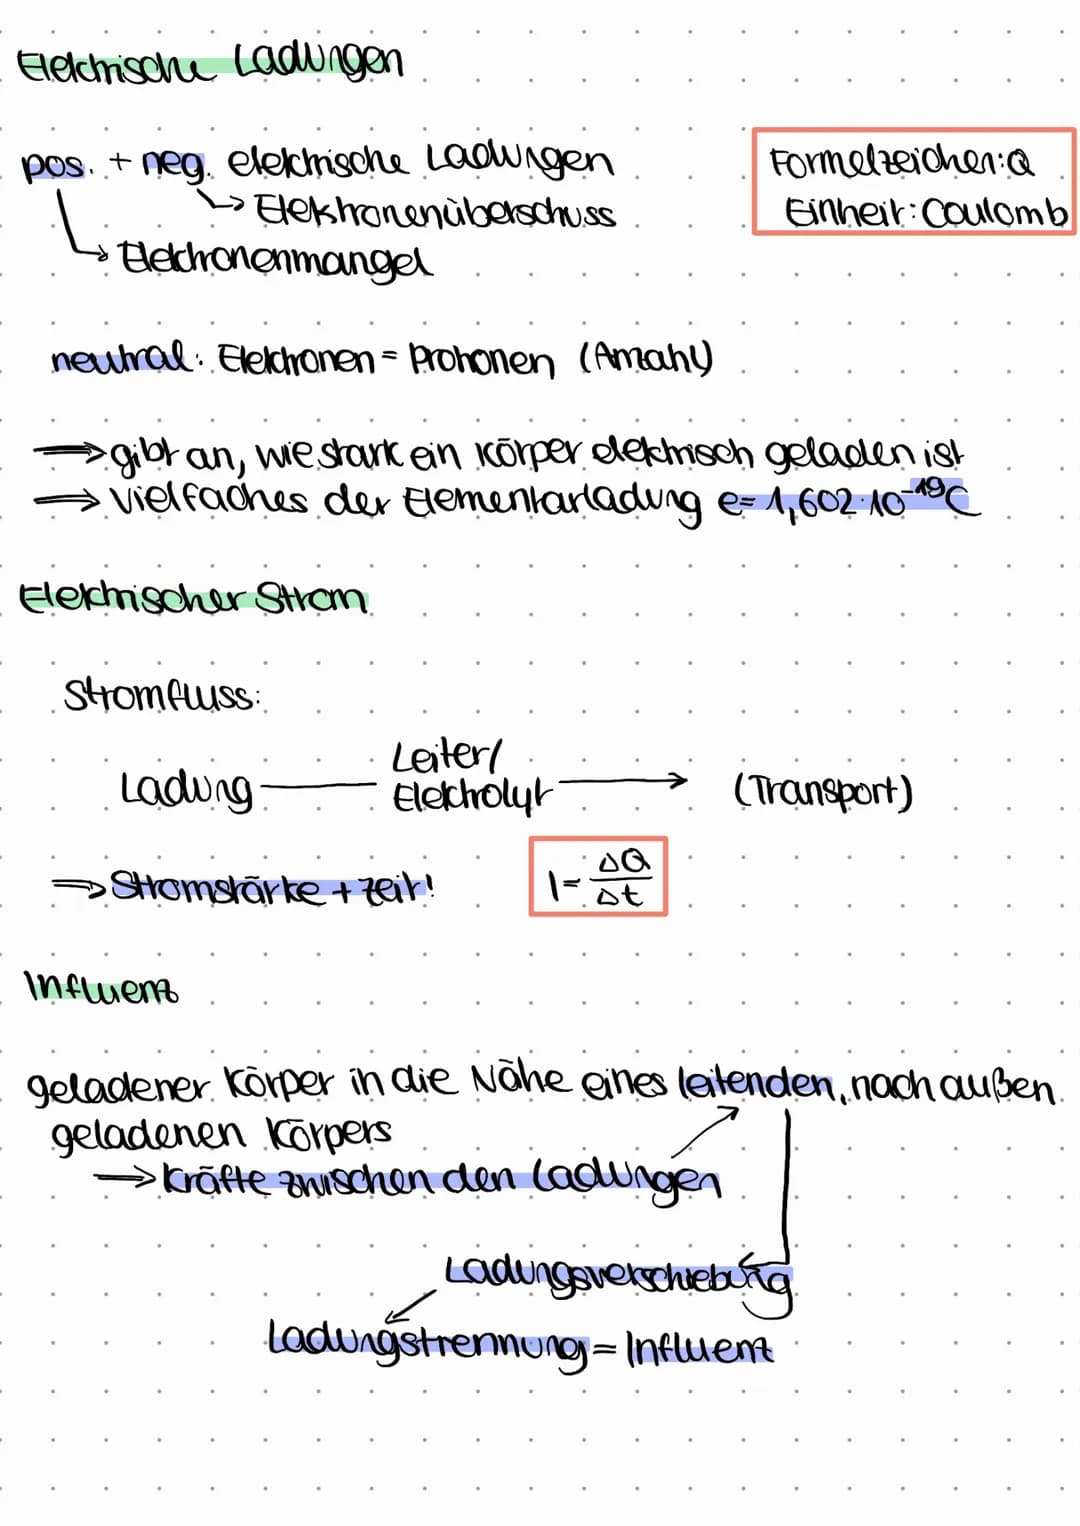 Elektrische Ladungen
pos. + neg. elektrische Ladungen
Formelzeichen: Q
Einheit: Coulomb
↳ Elektronenüberschuss
↳ Elektronenmangel
neutral: Elektronen = Protonen (Anzahl)
⟹ gibt an, wie stark ein Körper elektrisch geladen ist
⟹ Vielfaches der Elementarladung e= 1,602·10⁻¹⁹C
Elektrischer Strom
Stromfluss:
Ladung — Leiter/
Elektrolyt → (Transport)
⟹ Stromstärke + Zeit!
I = ΔQ/Δt
Influenz
geladener Körper in die Nähe eines leitenden, nach außen
geladenen Körpers
⟹ Kräfte zwischen den Ladungen
Ladungsverschiebung
Ladungstrennung = Influenz